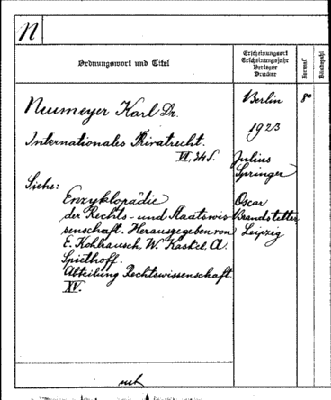 N
Ordnungswort und Titel
Erscheinungsort
Erscheinungsjahr
Verleger
Drucker
Format
Neumeyer Karl Dr.
Internationales Privatrecht.
VI. 34 S.
Siehe:
Enzyklopädie
der Rechts- und Staatswis
senschaft. Herausgegeben von
E. Kohlrausch, W. Kaskel, A.
Spiethoff.
Abteilung Rechtswissenschaft.
XV.
Berlin
1923
Julius
Springer
Oscar
Brandstetter
Leipzig
8°